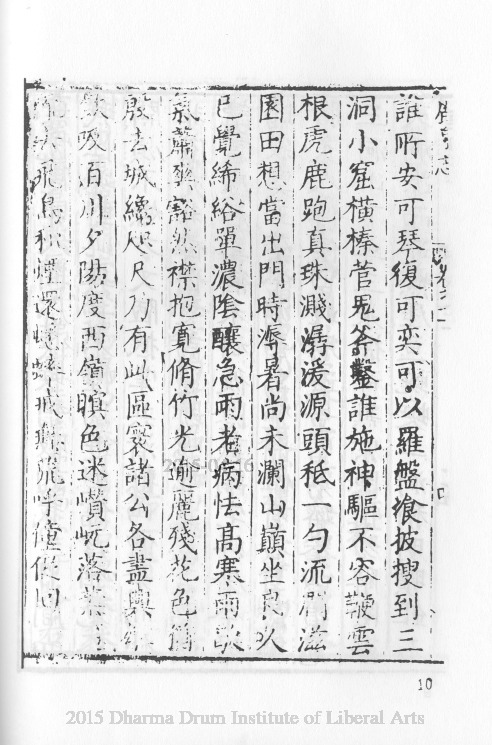 誰所安可琴復可奕可以羅盤飧披搜到三
洞小窟橫榛菅鬼斧鑿誰施神驅不容鞭雲
根虎鹿跑真珠濺潺湲源頭秪一勺流潤滋
園田想當出門時溽暑尚未瀾山巔坐良久
已覺絺綌單濃陰釀急雨老病怯高寒雨歇
氣蕭爽豁然襟抱寬脩竹光逾麗殘花色猶
殷去城纔咫尺乃有此區寰諸公各盡興
吸百川夕陽度西嶺瞑色迷巑岏落葉
飛鳥和煙還城呼僮
10
2015 Dharma Drum Institute of Liberal Arts